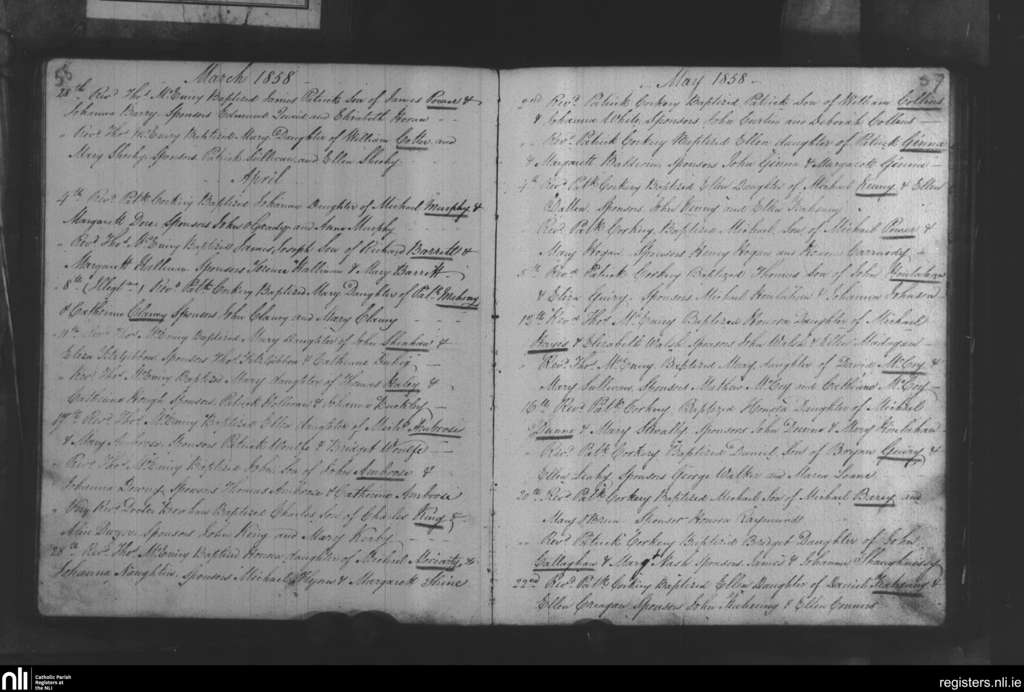 56
March 1858
28th Revd Thos McEniry Baptized James Patrick Son of James Power &
Johanna Barry Sponsors Edmund and Elizabeth
" Revd Thos McEniry Baptized Mary Daughter of William Cotter and
Mary Sheehy Sponsors Patrick Sullivan and Ellen Sheehy
April
4th Revd Patk Corkery Baptized Johanna Daughter of Michael Murphy &
Margaret Dore Sponsors John and Anne Murphy
" Revd Thos McEniry Baptized James Joseph Son of Richard Barrett &
Margarett Hallinan Sponsors Terence Hallinan & Mary Barrett
8th Revd Patk Corkery Baptized Mary Daughter of Patk Mahony
& Catherine Clancy Sponsors John Clancy and Mary Clancy
11th Revd Thos McEniry Baptized Mary Daughter of John Sheahan &
Eliza Fitzgibbon Sponsors Thos Fitzgibbon & Catherine
" Revd Thos McEniry Baptized Mary Daughter of Thomas Haley &
Catherine Hough Sponsors Patrick & Johanna Buckley
17th Revd Thos McEniry Baptized Ellen Daughter of Michl Ambrose
& Mary Ambrose Sponsors Patrick Woulfe & Bridget Woulfe
" Revd Thos McEniry Baptized John Son of John Ambrose &
Johanna Sponsors Thomas Ambrose & Catherine Ambrose
" Revd Baptized Charles Son of Charles King &
Alice Sponsors John King and Mary Kirby
28th Revd Thos McEniry Baptized Honora Daughter of Michael Moriarty &
Johanna Naughten Sponsors Michael Flynn & Margarett
57
May 1858
2nd Revd Patrick Corkery Baptized Patrick Son of William Collins
& Johanna White Sponsors John Curtin and Deborah Collins
" Revd Patrick Corkery Baptized Ellen daughter of Patrick
& Margarett Sponsors John & Margarett
4th Revd Patk Corkery Baptized Ellen Daughter of Michael Kenny & Ellen
Sponsors John Kenny and Ellen
" Revd Patk Corkery Baptized Michael Son of Michael Power &
Mary Hogan Sponsors Henry Hogan and
5th Revd Patrick Corkery Baptized Thomas Son of John Houlahan
& Eliza Guiry Sponsors Michael Houlahan & Johanna
13th Revd Thos McEniry Baptized Honora Daughter of Michael
Hayes & Elizabeth Walsh Sponsors John Walsh & Ellen Madigan
" Revd Thos McEniry Baptized Mary daughter of David McCoy &
Mary Sullivan Sponsors Mathew McCoy and Catherine McCoy
16th Revd Patk Corkery Baptized Honora Daughter of Michael
& Mary Sponsors John and Mary Houlahan
" Revd Patk Corkery Baptized Daniel Son of Bryan Guiry &
Ellen Leahy Sponsors George Walker and Maria
20th Revd Patk Corkery Baptized Michael Son of Michael Berry and
Mary O'Brien Sponsor Honora
" Revd Patrick Corkery Baptized Bridget Daughter of John
Gallagher & Margt Nash Sponsors James & Johanna Shaughnessy
22nd Revd Patk Corkery Baptized Ellen Daughter of
Ellen Creagan Sponsors John & Ellen Connors
nli
Catholic Parish
Registers at
the NLI
registers.nli.ie